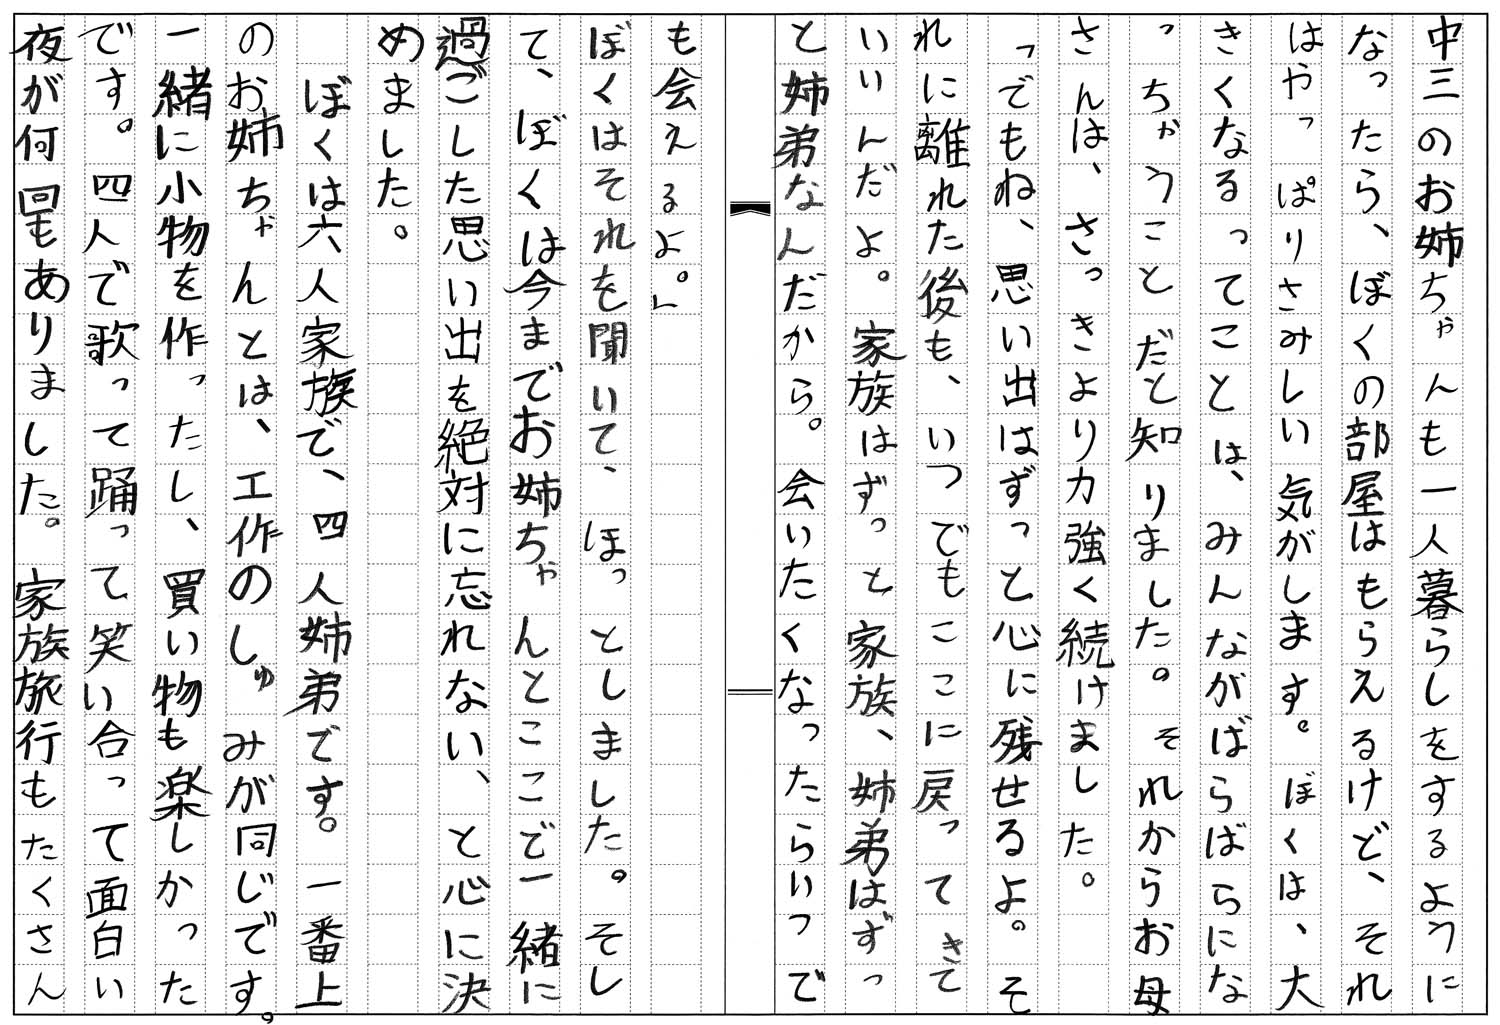 中三のお姉ちゃんも一人暮らしをするように
なったら、ぼくの部屋はもらえるけど、それ
はやっぱりさみしい気がします。ぼくは、大
きくなるってことは、みんながばらばらにな
っちゃうことだと知りました。それからお母
さんは、さっきより力強く続けました。
「でもね、思い出はずっと心に残せるよ。そ
れに離れた後も、いつでもここに戻ってきて
いいんだよ。家族はずっと家族、姉弟はずっ
と姉弟なんだから。会いたくなったらいつで
も会えるよ。」
ぼくはそれを聞いて、ほっとしました。そし
て、ぼくは今までお姉ちゃんとここで一緒に
過ごした思い出を絶対に忘れない、と心に決
めました。
ぼくは六人家族で、四人姉弟です。一番上
のお姉ちゃんとは、工作のしゅみが同じです。
一緒に小物を作ったし、買い物も楽しかった
です。四人で歌って踊って笑い合って面白い
夜が何回もありました。家族旅行もたくさん